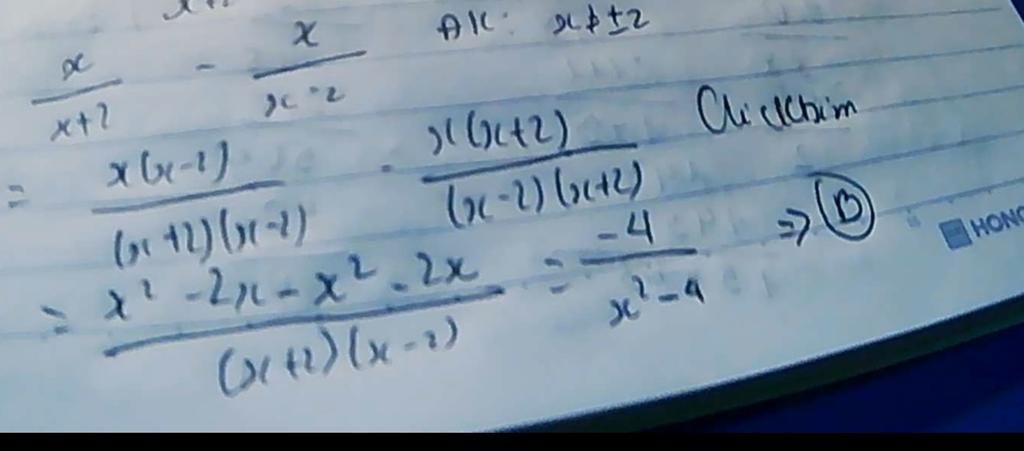 x/(x+2) - x/(x-2) ĐK: x ≠ ±2
= x(x-2)/((x+2)(x-2)) - x(x+2)/((x-2)(x+2))
= (x² - 2x - x² - 2x)/((x+2)(x-2)) = -4/(x²-4) => B
HONG